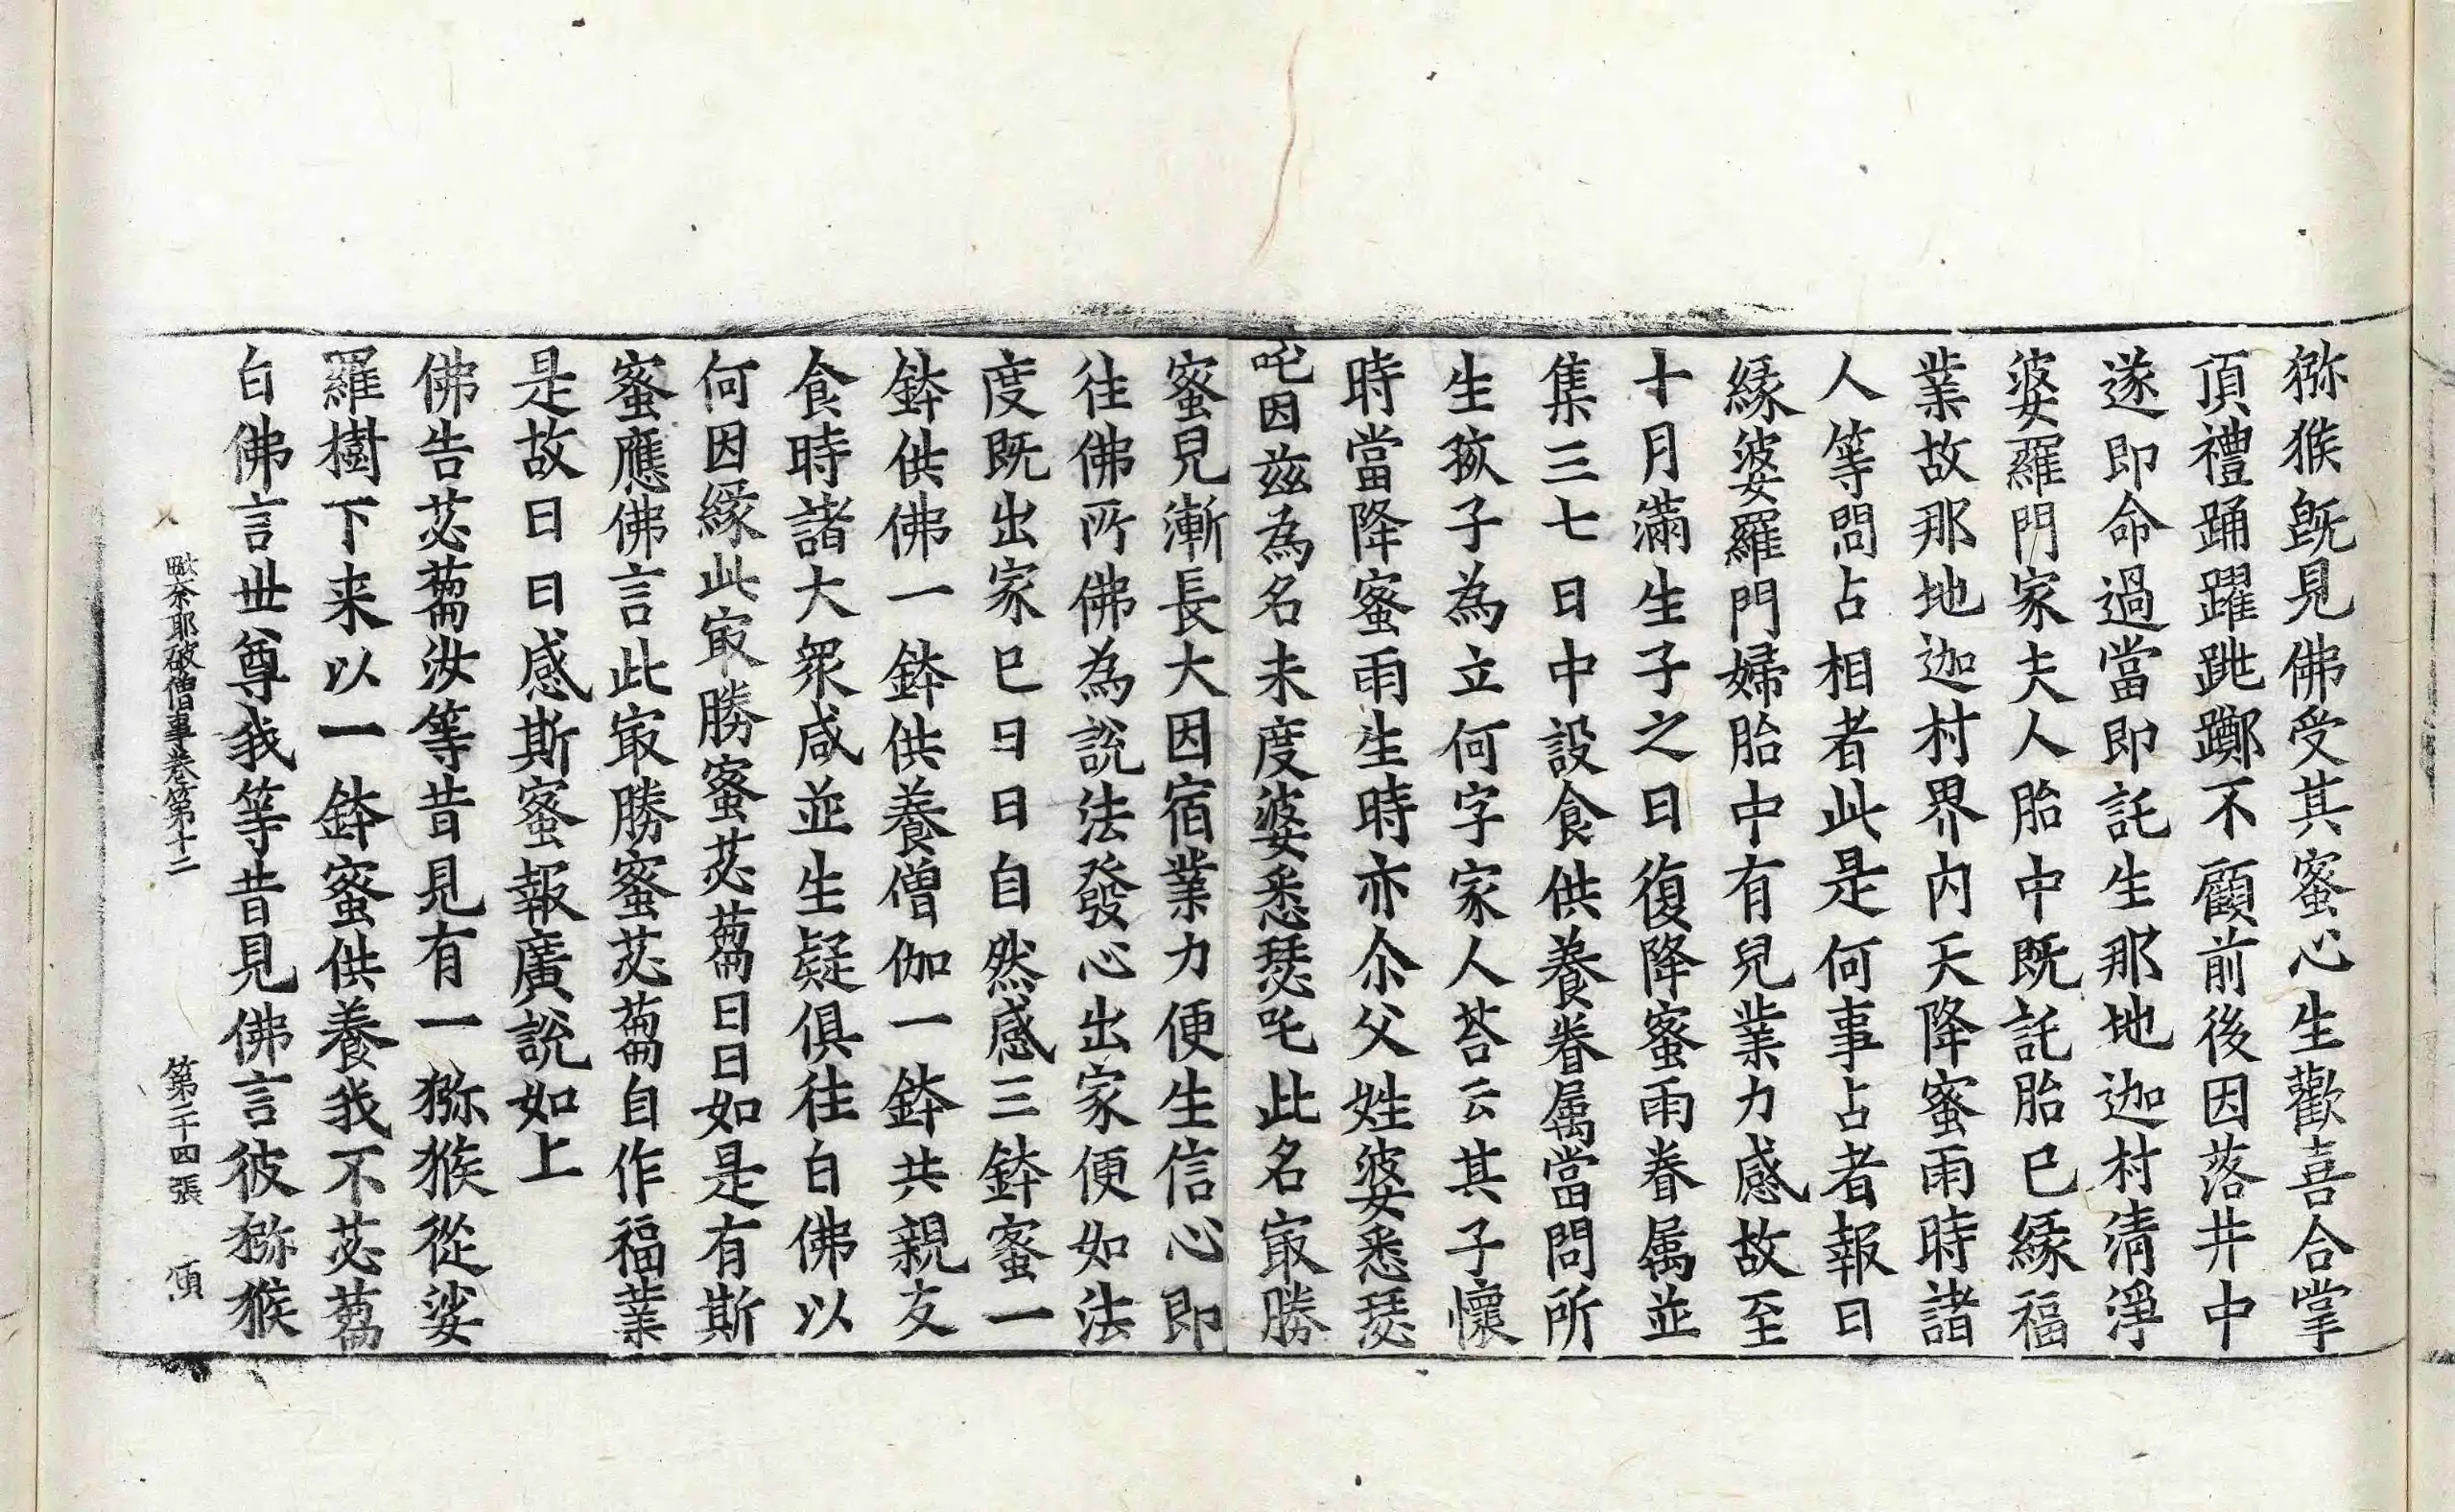 猕猴旣見佛受其蜜心生歡喜合掌
頂禮踊躍跳躑不顧前後因落井中
遂即命過當即託生那地迦村清淨
婆羅門家夫人胎中既託胎已緣福
業故那地迦村界内天降蜜雨時諸
人等問占相者此是何事占者報曰
緣婆羅門婦胎中有兒業力感故至
十月滿生子之日復降蜜雨眷属並
集三七日中設食供養眷属當問所
生孩子為立何字家人荅云其子懷
時當降蜜雨生時亦尒父姓婆悉瑟
吒因兹為名未度婆悉瑟吒此名㝡勝
蜜見漸長大因宿業力便生信心即
往佛所佛為說法發心出家便如法
度既出家已日日自然感三鉢蜜一
鉢供佛一鉢供養僧伽一鉢共親友
食時諸大衆咸並生疑俱往白佛以
何因緣此㝡勝蜜苾蒭日日如是有斯
蜜應佛言此㝡勝蜜苾蒭自作福業
是故日日感斯蜜報廣說如上
佛告苾蒭汝等昔見有一猕猴從娑
羅樹下来以一鉢蜜供養我不苾蒭
白佛言世尊我等昔見佛言彼猕猴
毗奈耶破僧事卷第十二 第二十四張 傾